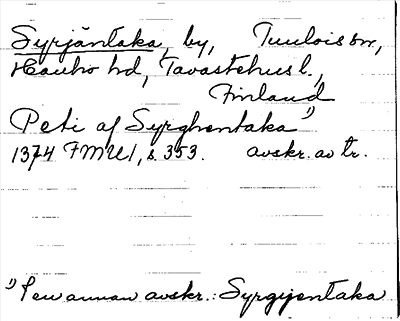 Syrjäntaka, by, Tuulois sn,
Hauho hd, Tavastehus l.,
Finland
Peti af Syrghentaka"¹⁾
1374 FMU I, s. 353. avskr. av tr.
¹⁾ I en annan avskr.: Syrgijentaka